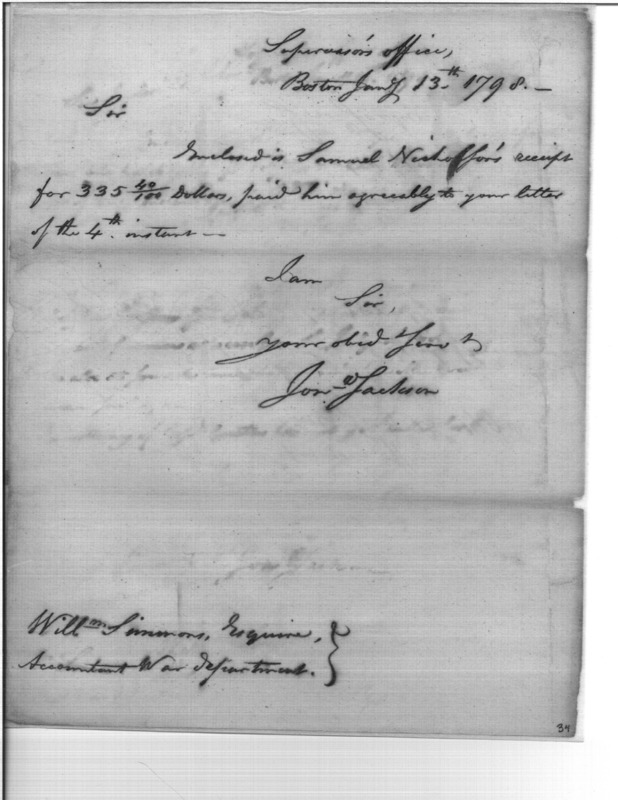 Supervisor's office,
Boston Jany 13th 1798. —
Sir
Enclosed is Samuel Nicholson's receipt
for 335 40/100 Dollars, paid him agreeably to your letter
of the 4th instant —
I am
Sir,
your obed t Serv t
Jon a Jackson
Will m Simmons, Esquire,
Accountant War department.
34